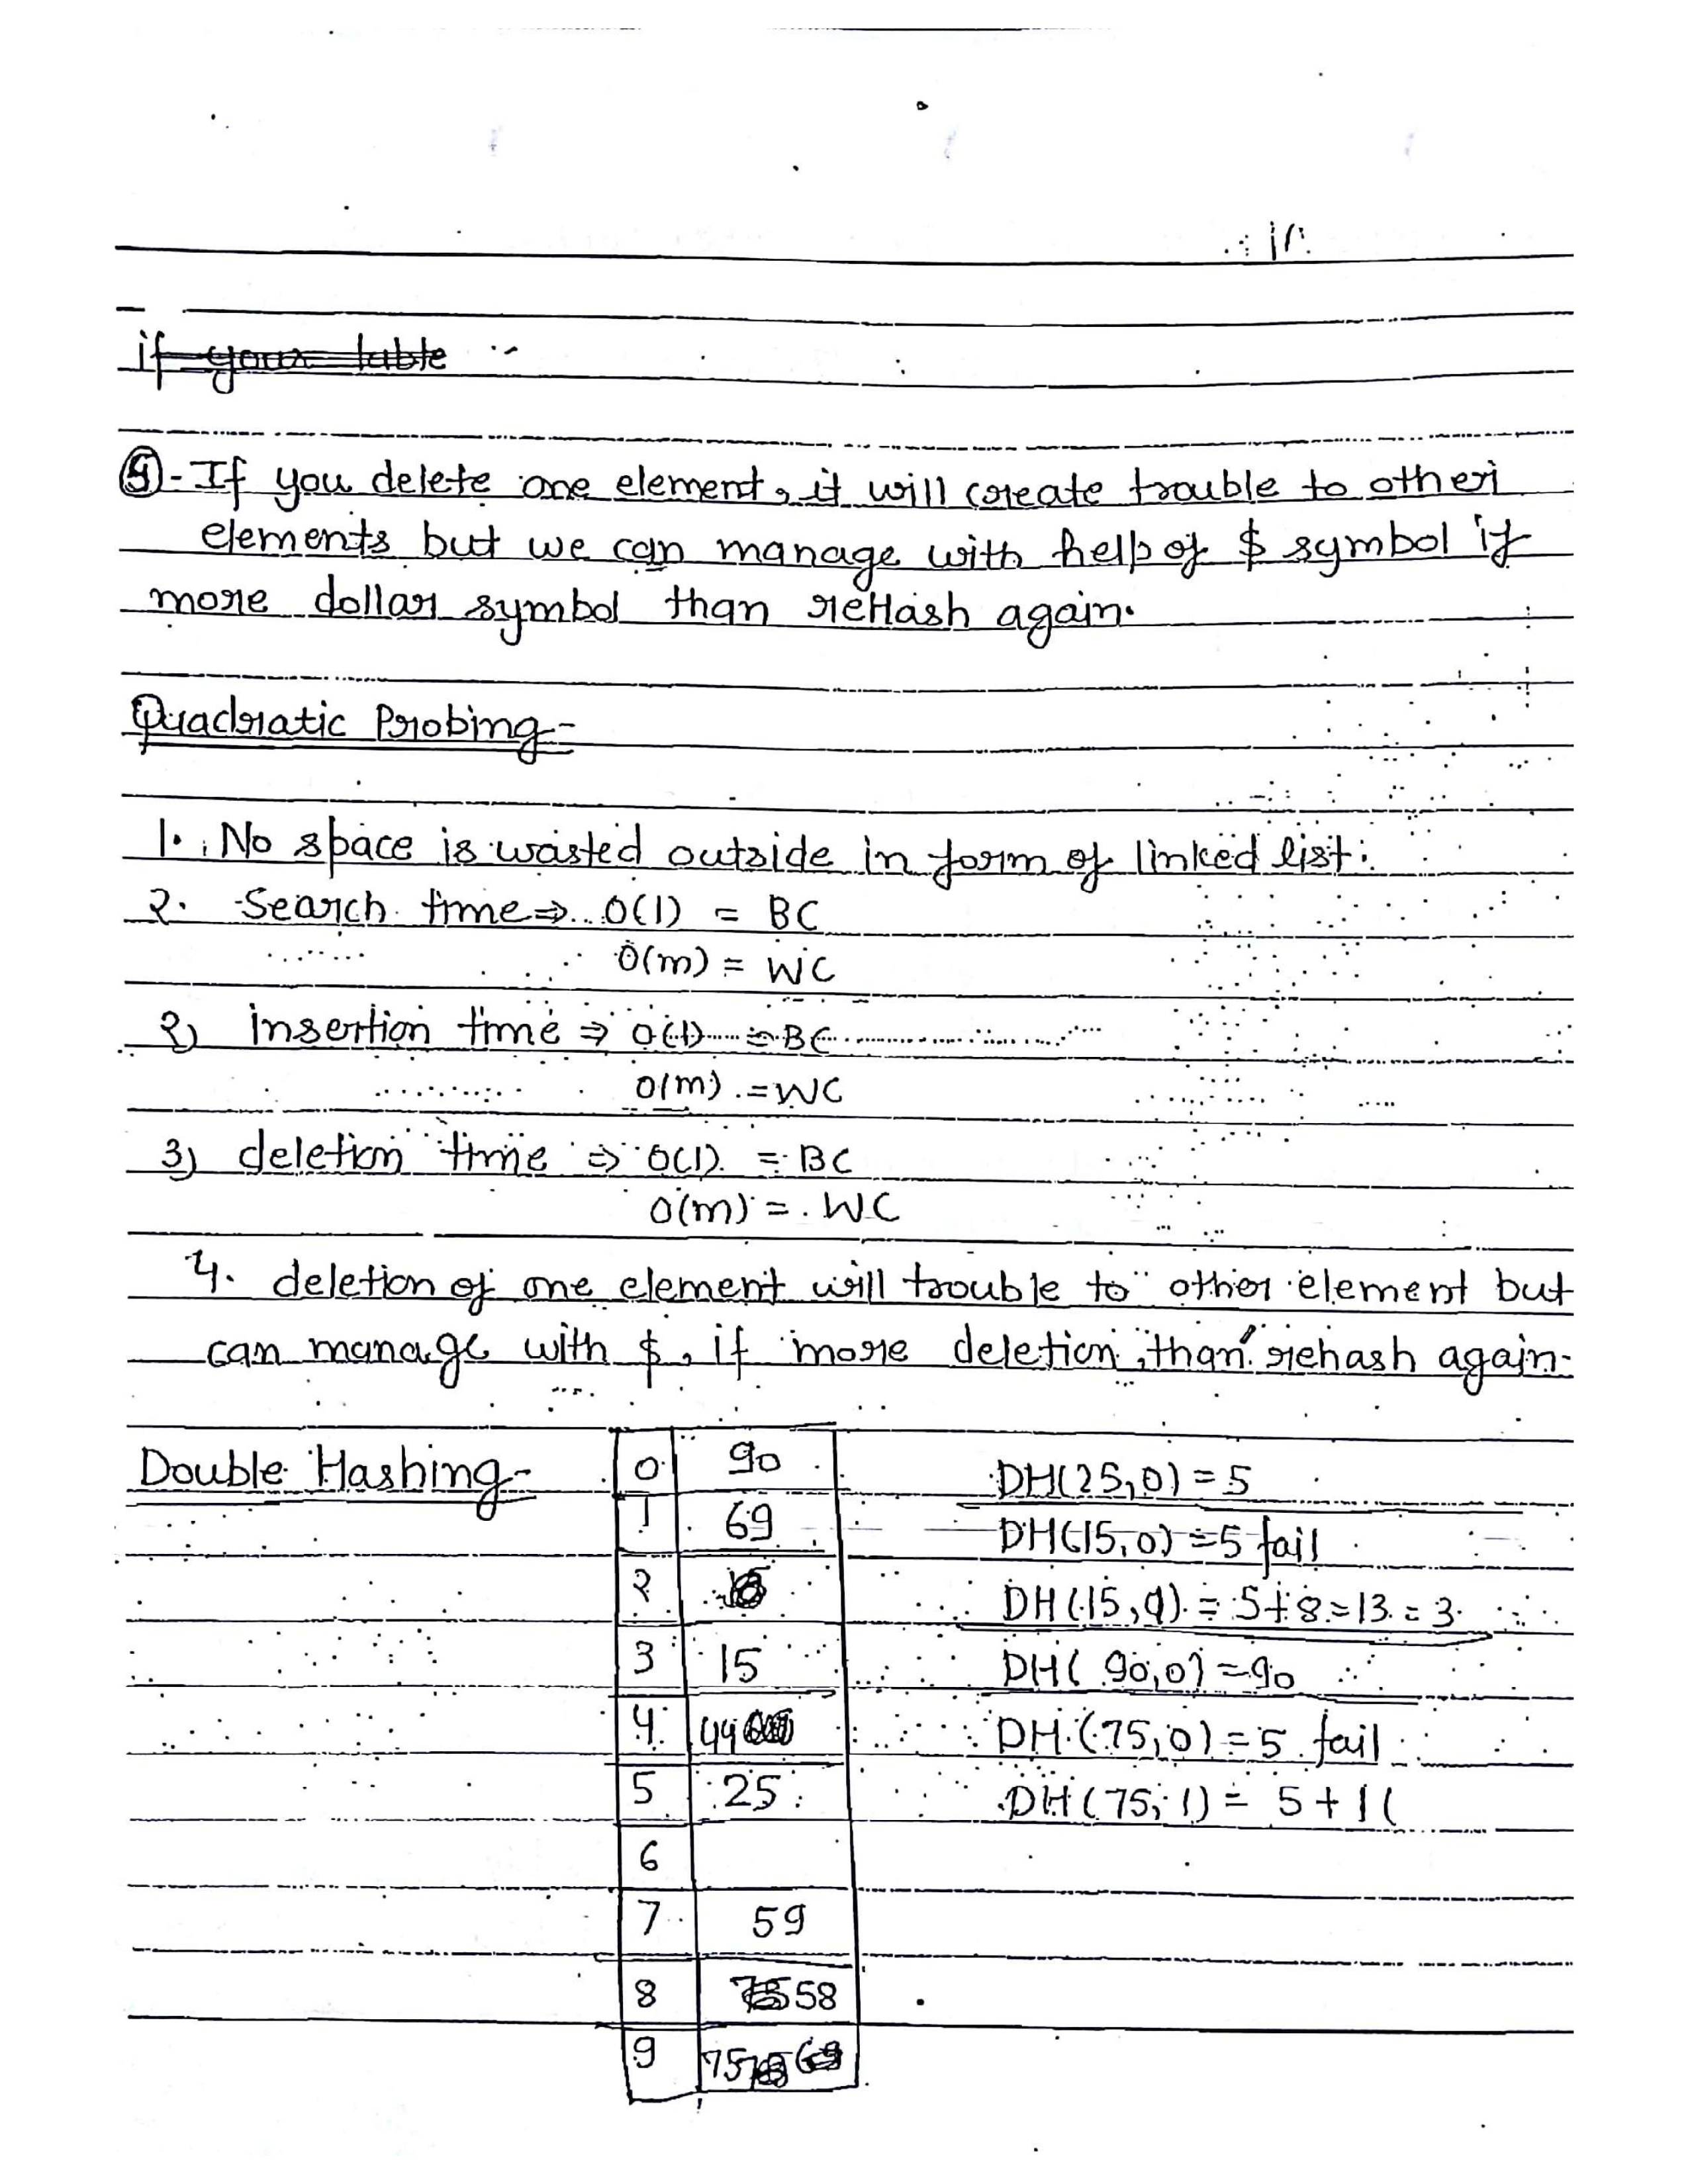 if your table
⑤- If you delete one element, it will create trouble to other
elements but we can manage with help of $ symbol if
more dollar symbol than reHash again.
Quadratic Probing-
1. No space is wasted outside in form of linked list.
2. Search time ⇒ O(1) = BC
O(m) = WC
2) insertion time ⇒ O(1) = BC
O(m) = WC
3) deletion time ⇒ O(1) = BC
O(m) = WC
4. deletion of one element will trouble to other element but
can manage with $, if more deletion, than rehash again-
Double Hashing-
0 90
1 69
2
3 15
4 44
5 25
6
7 59
8 58
9 75
DH(25,0) = 5
DH(15,0) = 5 fail
DH(15,1) = 5+8 = 13 = 3
DH(90,0) = 90
DH(75,0) = 5 fail
DH(75,1) = 5+1(